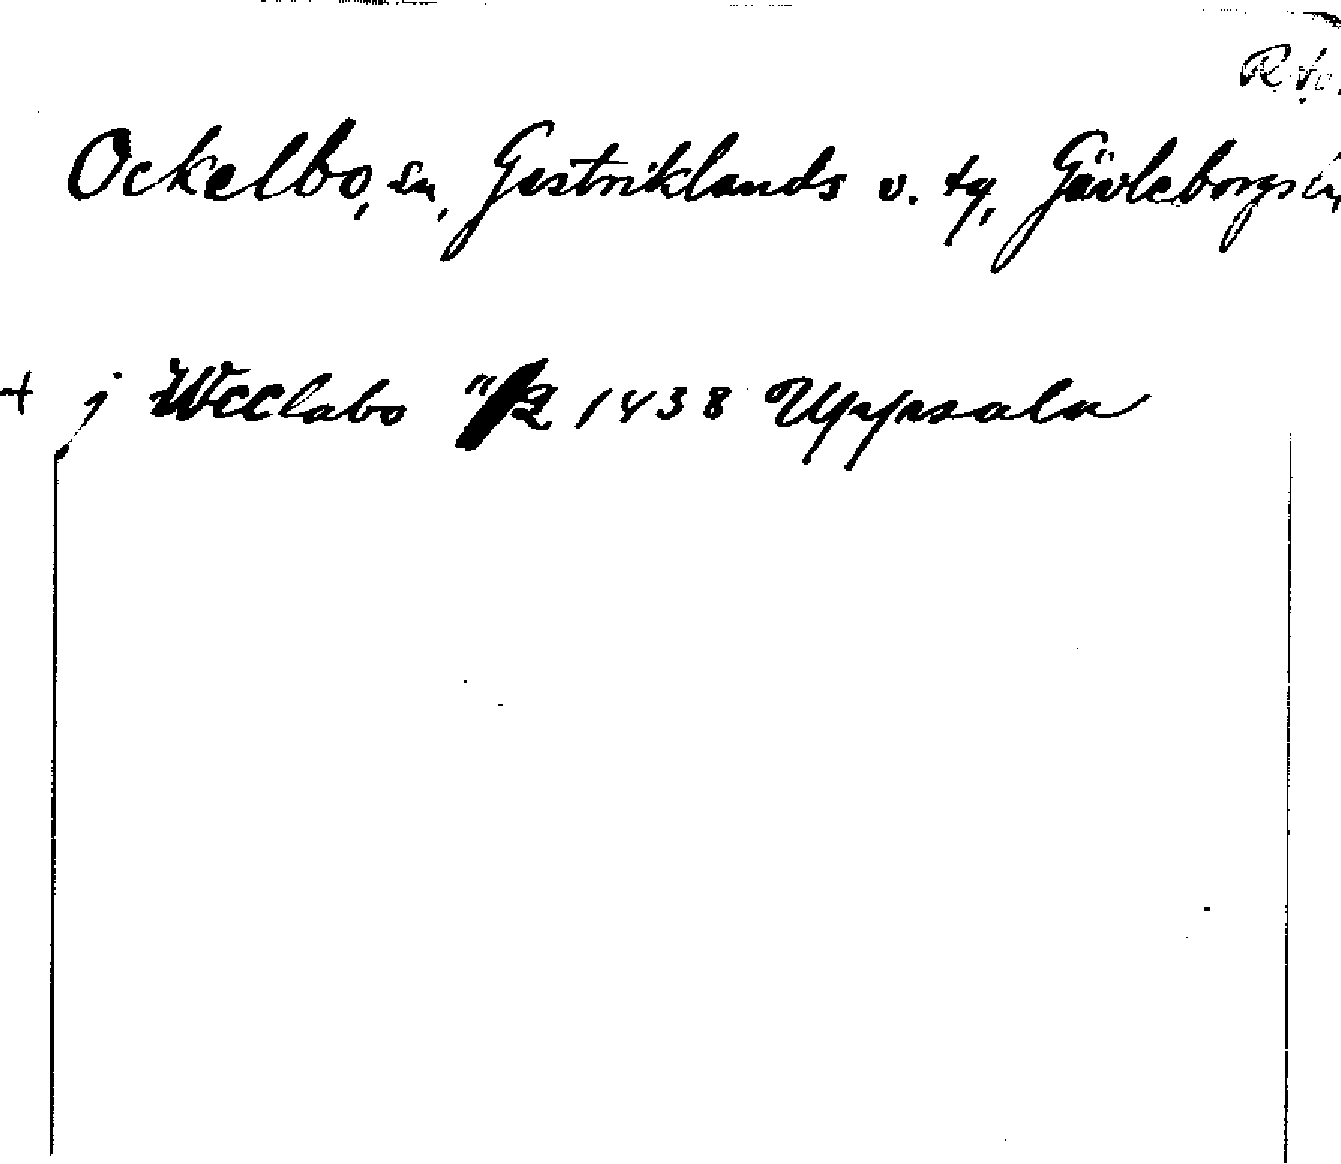 Ockelbo, sn, Gestriklands v. tg, Gävleborgs län
j Wcclabo 11/2 1438 Uppsala